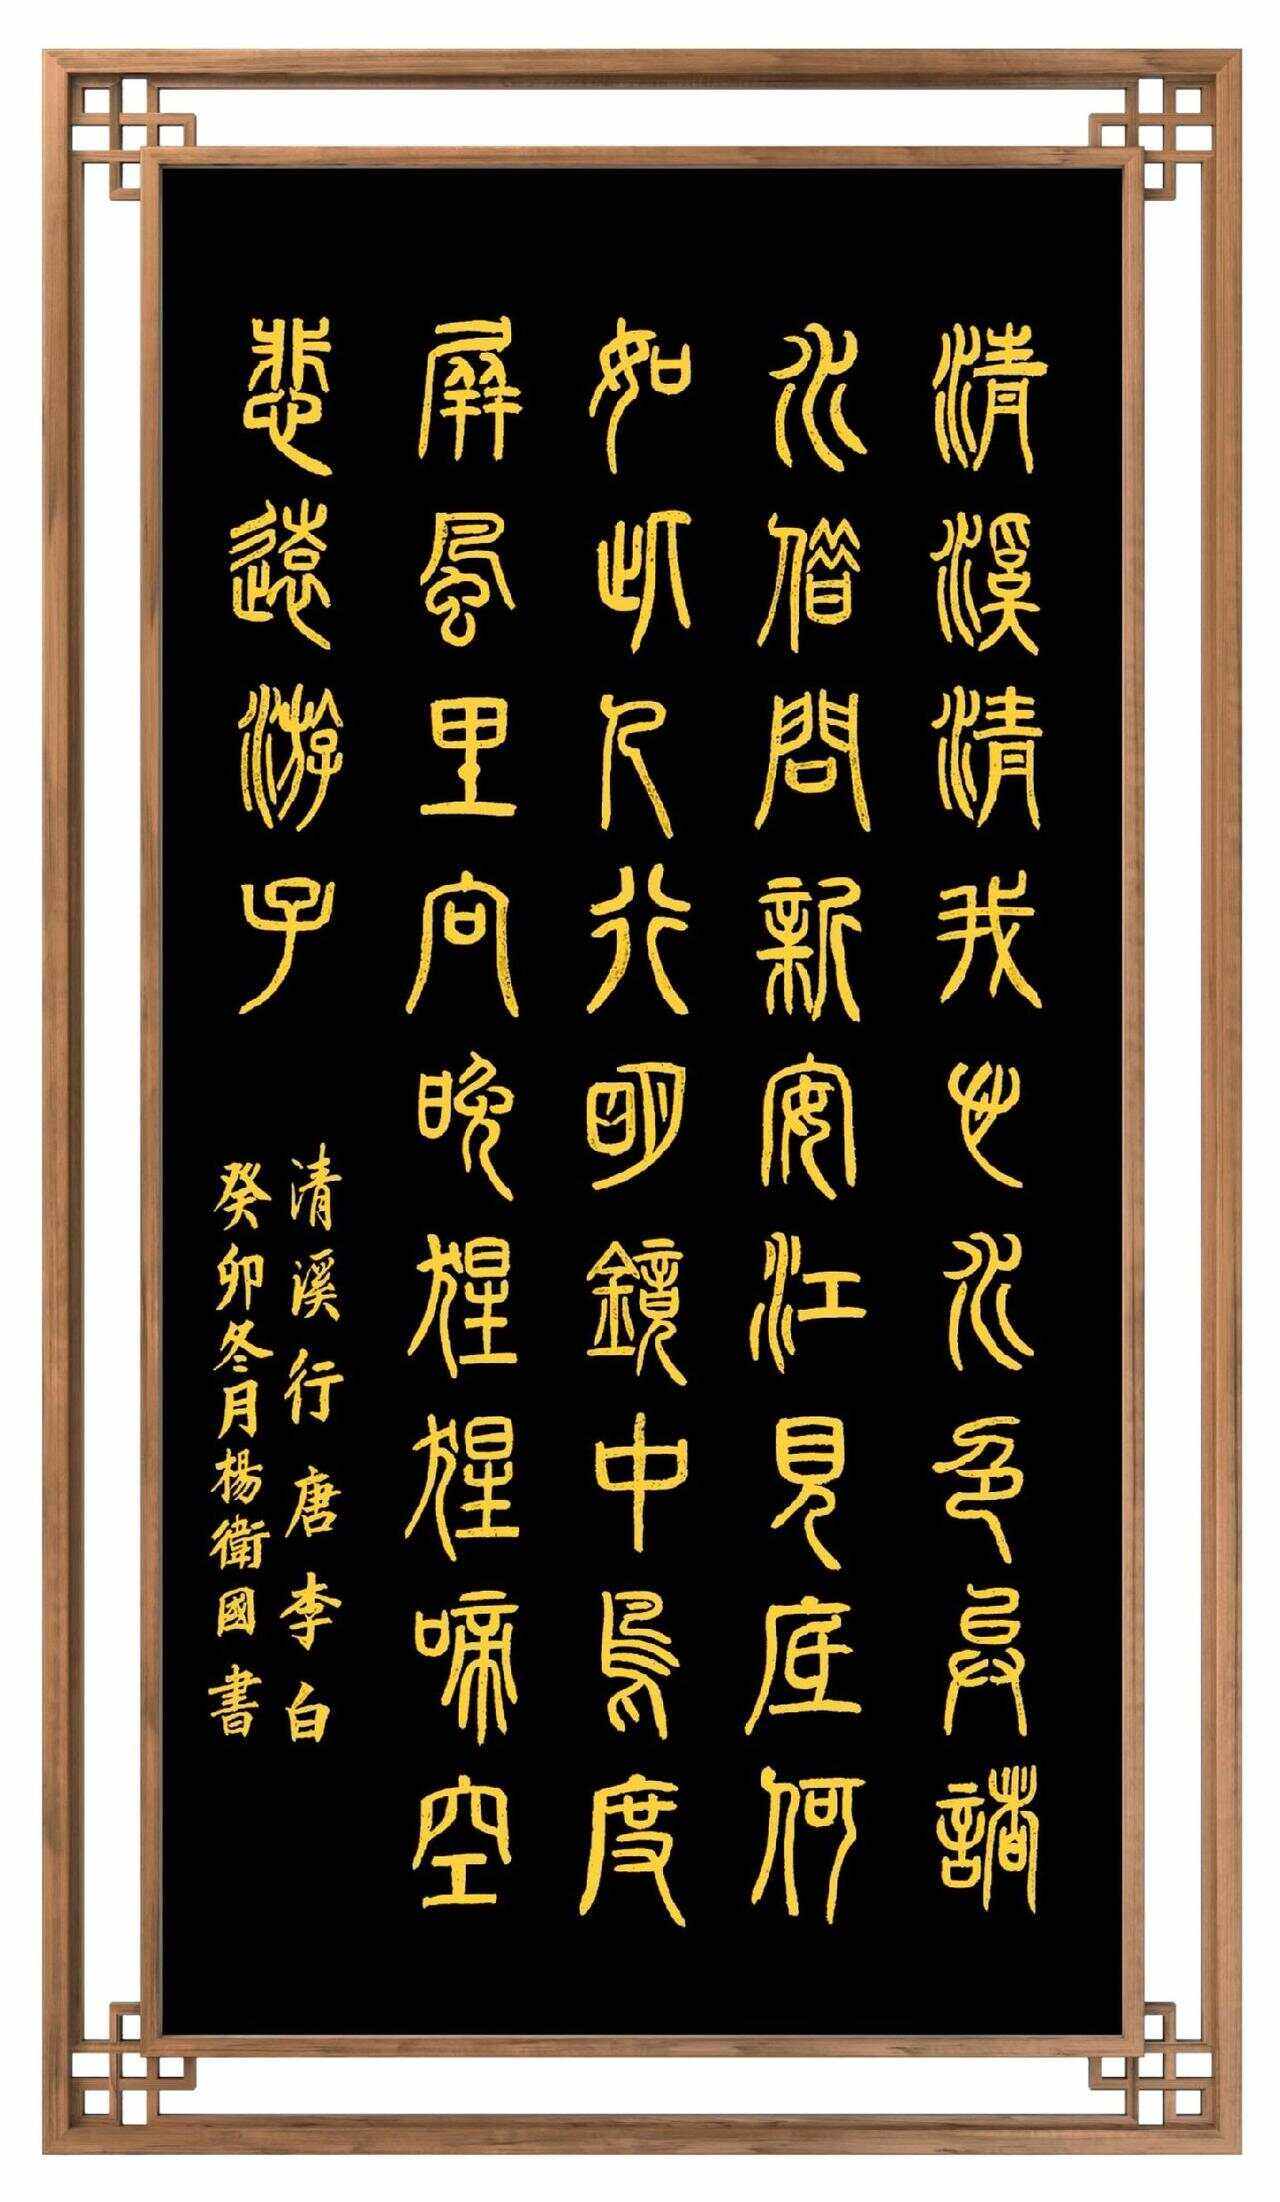 清溪清我心水色異諸
水借問新安江見底何
如此人行明鏡中鳥度
屏風里向晚猩猩啼空
悲遠游子
清溪行唐李白
癸卯冬月楊衛國書